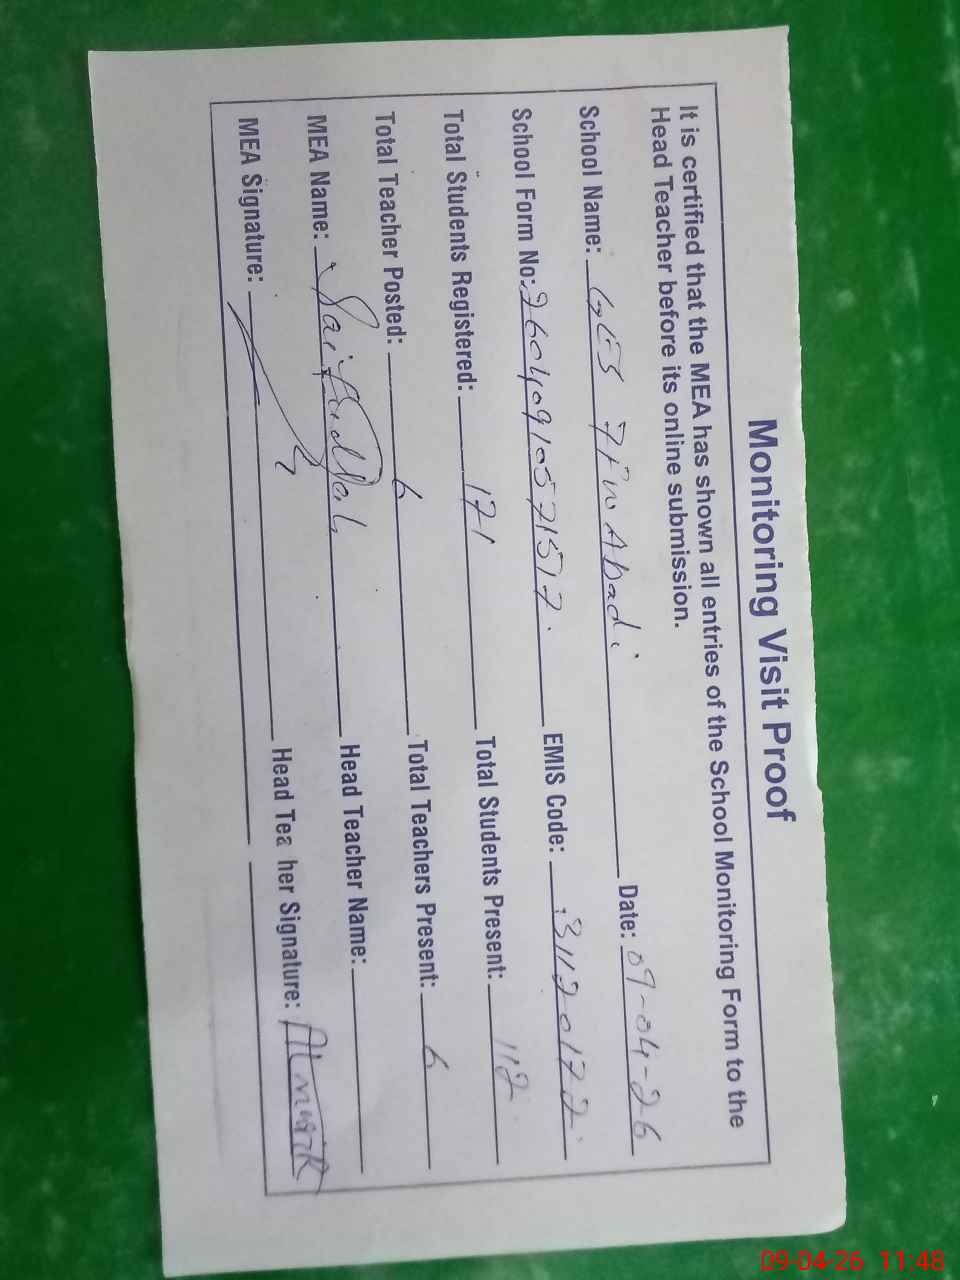 Monitoring Visit Proof
It is certified that the MEA has shown all entries of the School Monitoring Form to the
Head Teacher before its online submission.
School Name: GES 7/1W Abadi Date: 09-04-26
School Form No: 26040910571517. EMIS Code: 31120172
Total Students Registered: 171 Total Students Present: 112
Total Teacher Posted: 6 Total Teachers Present: 6
MEA Name: Saif Head Teacher Name:
MEA Signature: Head Tea her Signature:
09-04-26 11:48